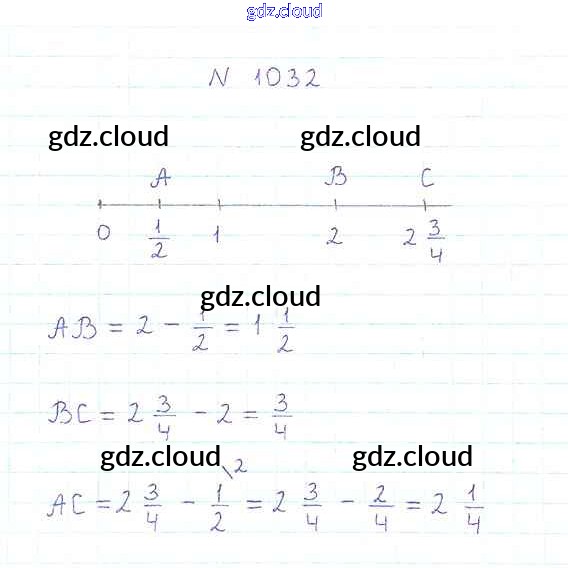 gdz.cloud
N 1032
gdz.cloud gdz.cloud
A B C
0 1/2 1 2 2 3/4
gdz.cloud
AB = 2 - 1/2 = 1 1/2
BC = 2 3/4 - 2 = 3/4
gdz.cloud gdz.cloud
AC = 2 3/4 - 1/2 \2 = 2 3/4 - 2/4 = 2 1/4